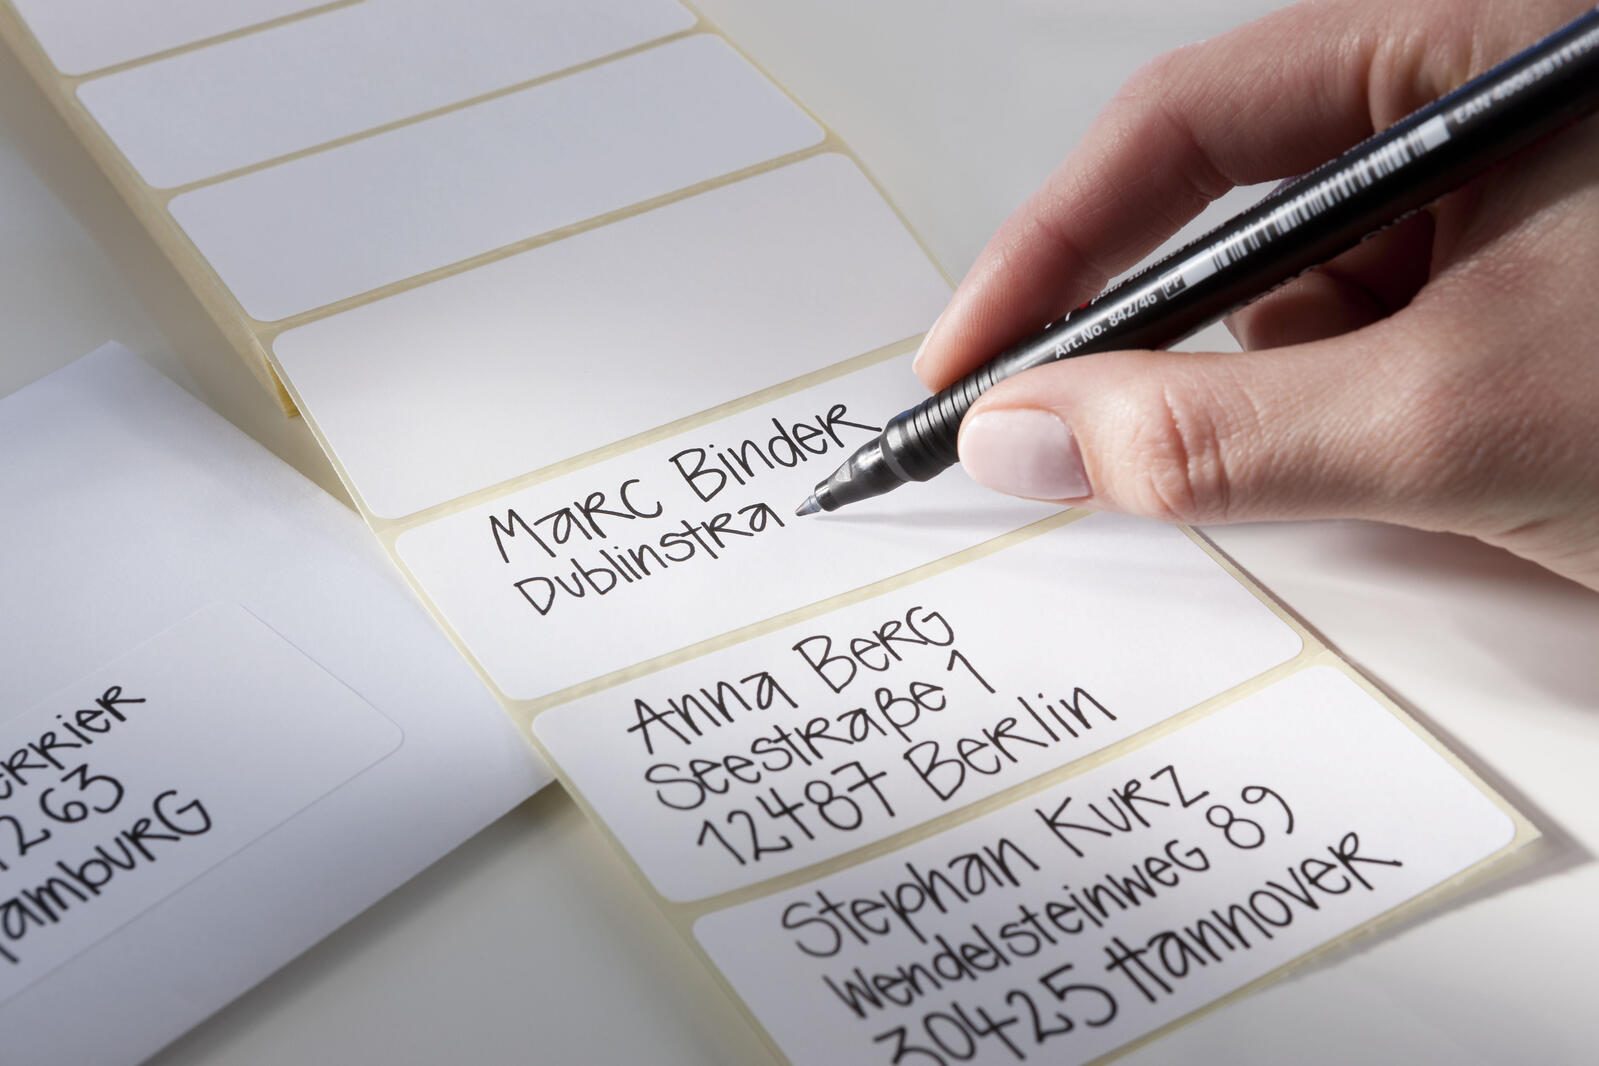 Marc Binder
Dublinstra
Anna Berg
Seestraße 1
12487 Berlin
Stephan Kurz
Wendelsteinweg 89
30425 Hannover
errier
263
amburg
Art.No. 842/46 PP